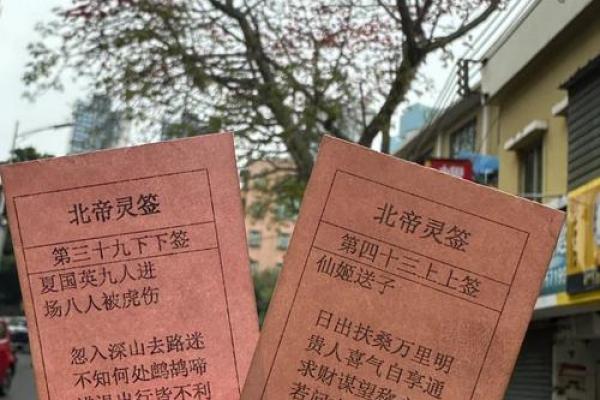 北帝灵签
第三十九下下签
夏国英九人进
场八人被虎伤
忽入深山去路迷
不知何处鹧鸪啼
出行皆不利
北帝灵签
第四十三上上签
仙姬送子
日出扶桑万里明
贵人喜气自享通
求财谋望称
若问